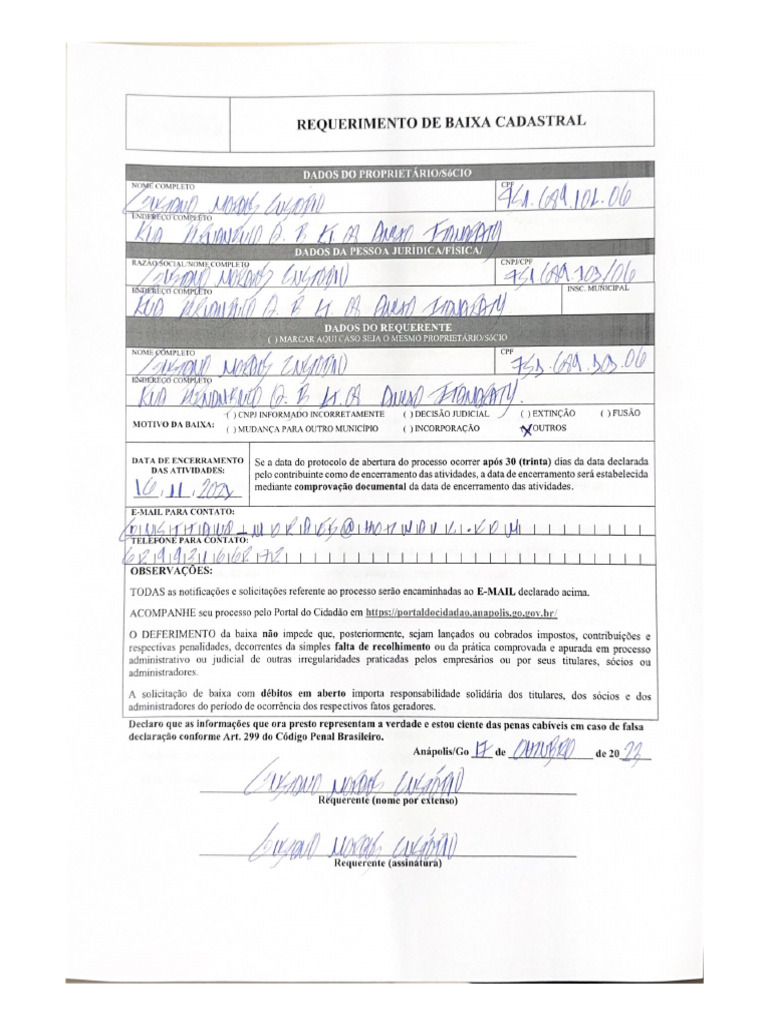 REQUERIMENTO DE BAIXA CADASTRAL
DADOS DO PROPRIETÁRIO/SóCIO
NOME COMPLETO
CPF
MORAIS
ENDEREÇO COMPLETO
RUA
DADOS DA PESSOA JURÍDICA/FÍSICA/
RAZÃO SOCIAL/NOME COMPLETO
CNPJ/CPF
MORAIS
ENDEREÇO COMPLETO
INSC. MUNICIPAL
RUA
DADOS DO REQUERENTE
( ) MARCAR AQUI CASO SEJA O MESMO PROPRIETÁRIO/SóCIO
NOME COMPLETO
CPF
MORAIS
ENDEREÇO COMPLETO
RUA
MOTIVO DA BAIXA:
( ) CNPJ INFORMADO INCORRETAMENTE ( ) DECISÃO JUDICIAL ( ) EXTINÇÃO ( ) FUSÃO
( ) MUDANÇA PARA OUTRO MUNICÍPIO ( ) INCORPORAÇÃO (X) OUTROS
DATA DE ENCERRAMENTO
DAS ATIVIDADES:
16.11.
Se a data do protocolo de abertura do processo ocorrer após 30 (trinta) dias da data declarada
pelo contribuinte como de encerramento das atividades, a data de encerramento será estabelecida
mediante comprovação documental da data de encerramento das atividades.
E-MAIL PARA CONTATO:
TELEFONE PARA CONTATO:
OBSERVAÇÕES:
TODAS as notificações e solicitações referente ao processo serão encaminhadas ao E-MAIL declarado acima.
ACOMPANHE seu processo pelo Portal do Cidadão em https://portaldocidadao.anapolis.go.gov.br/
O DEFERIMENTO da baixa não impede que, posteriormente, sejam lançados ou cobrados impostos, contribuições e
respectivas penalidades, decorrentes da simples falta de recolhimento ou da prática comprovada e apurada em processo
administrativo ou judicial de outras irregularidades praticadas pelos empresários ou por seus titulares, sócios ou
administradores.
A solicitação de baixa com débitos em aberto importa responsabilidade solidária dos titulares, dos sócios e dos
administradores do período de ocorrência dos respectivos fatos geradores.
Declaro que as informações que ora presto representam a verdade e estou ciente das penas cabíveis em caso de falsa
declaração conforme Art. 299 do Código Penal Brasileiro.
Anápolis/Go 17 de OUTUBRO de 20 23
MORAIS
Requerente (nome por extenso)
MORAIS
Requerente (assinatura)